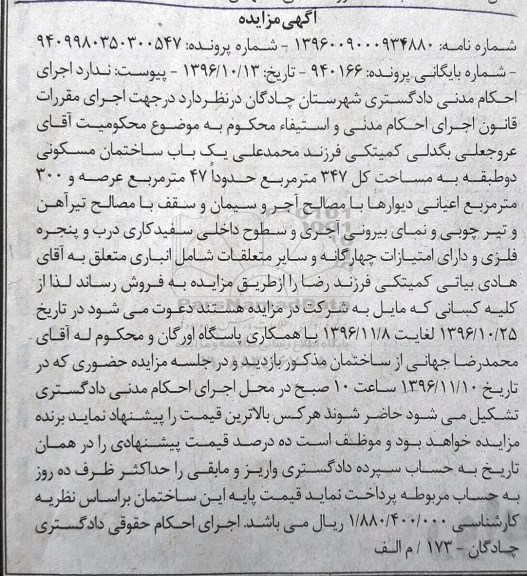 آگهی مزایده
شماره نامه: ۱۳۹۶۰۰۹۰۰۰۹۳۴۸۸۰ - شماره پرونده: ۹۴۰۹۹۸۰۳۵۰۳۰۰۵۴۷
- شماره بایگانی پرونده: ۹۴۰۱۶۶ - تاریخ: ۱۳۹۶/۱۰/۱۳ - پیوست: ندارد اجرای
احکام مدنی دادگستری شهرستان چادگان درنظردارد درجهت اجرای مقررات
قانون اجرای احکام مدنی و استیفاء محکوم به موضوع محکومیت آقای
عروجعلی بگدلی کمیتکی فرزند محمدعلی یک باب ساختمان مسکونی
دوطبقه به مساحت کل ۳۴۷ مترمربع حدوداً ۴۷ مترمربع عرصه و ۳۰۰
مترمربع اعیانی دیوارها با مصالح آجر و سیمان و سقف با مصالح تیرآهن
و تیر چوبی و نمای بیرونی آجری و سطوح داخلی سفیدکاری درب و پنجره
فلزی و دارای امتیازات چهارگانه و سایر متعلقات شامل انباری متعلق به آقای
هادی بیاتی کمیتکی فرزند رضا را ازطریق مزایده به فروش رساند لذا از
کلیه کسانی که مایل به شرکت در مزایده هستند دعوت می شود در تاریخ
۱۳۹۶/۱۰/۲۵ لغایت ۱۳۹۶/۱۱/۸ با همکاری پاسگاه اورگان و محکوم له آقای
محمدرضا جهانی از ساختمان مذکور بازدید و در جلسه مزایده حضوری که در
تاریخ ۱۳۹۶/۱۱/۱۰ ساعت ۱۰ صبح در محل اجرای احکام مدنی دادگستری
تشکیل می شود حاضر شوند هرکس بالاترین قیمت را پیشنهاد نماید برنده
مزایده خواهد بود و موظف است ده درصد قیمت پیشنهادی را در همان
تاریخ به حساب سپرده دادگستری واریز و مابقی را حداکثر ظرف ده روز
به حساب مربوطه پرداخت نماید قیمت پایه این ساختمان براساس نظریه
کارشناسی ۱/۸۸۰/۴۰۰/۰۰۰ ریال می باشد. اجرای احکام حقوقی دادگستری
چادگان - ۱۷۳ / م الف